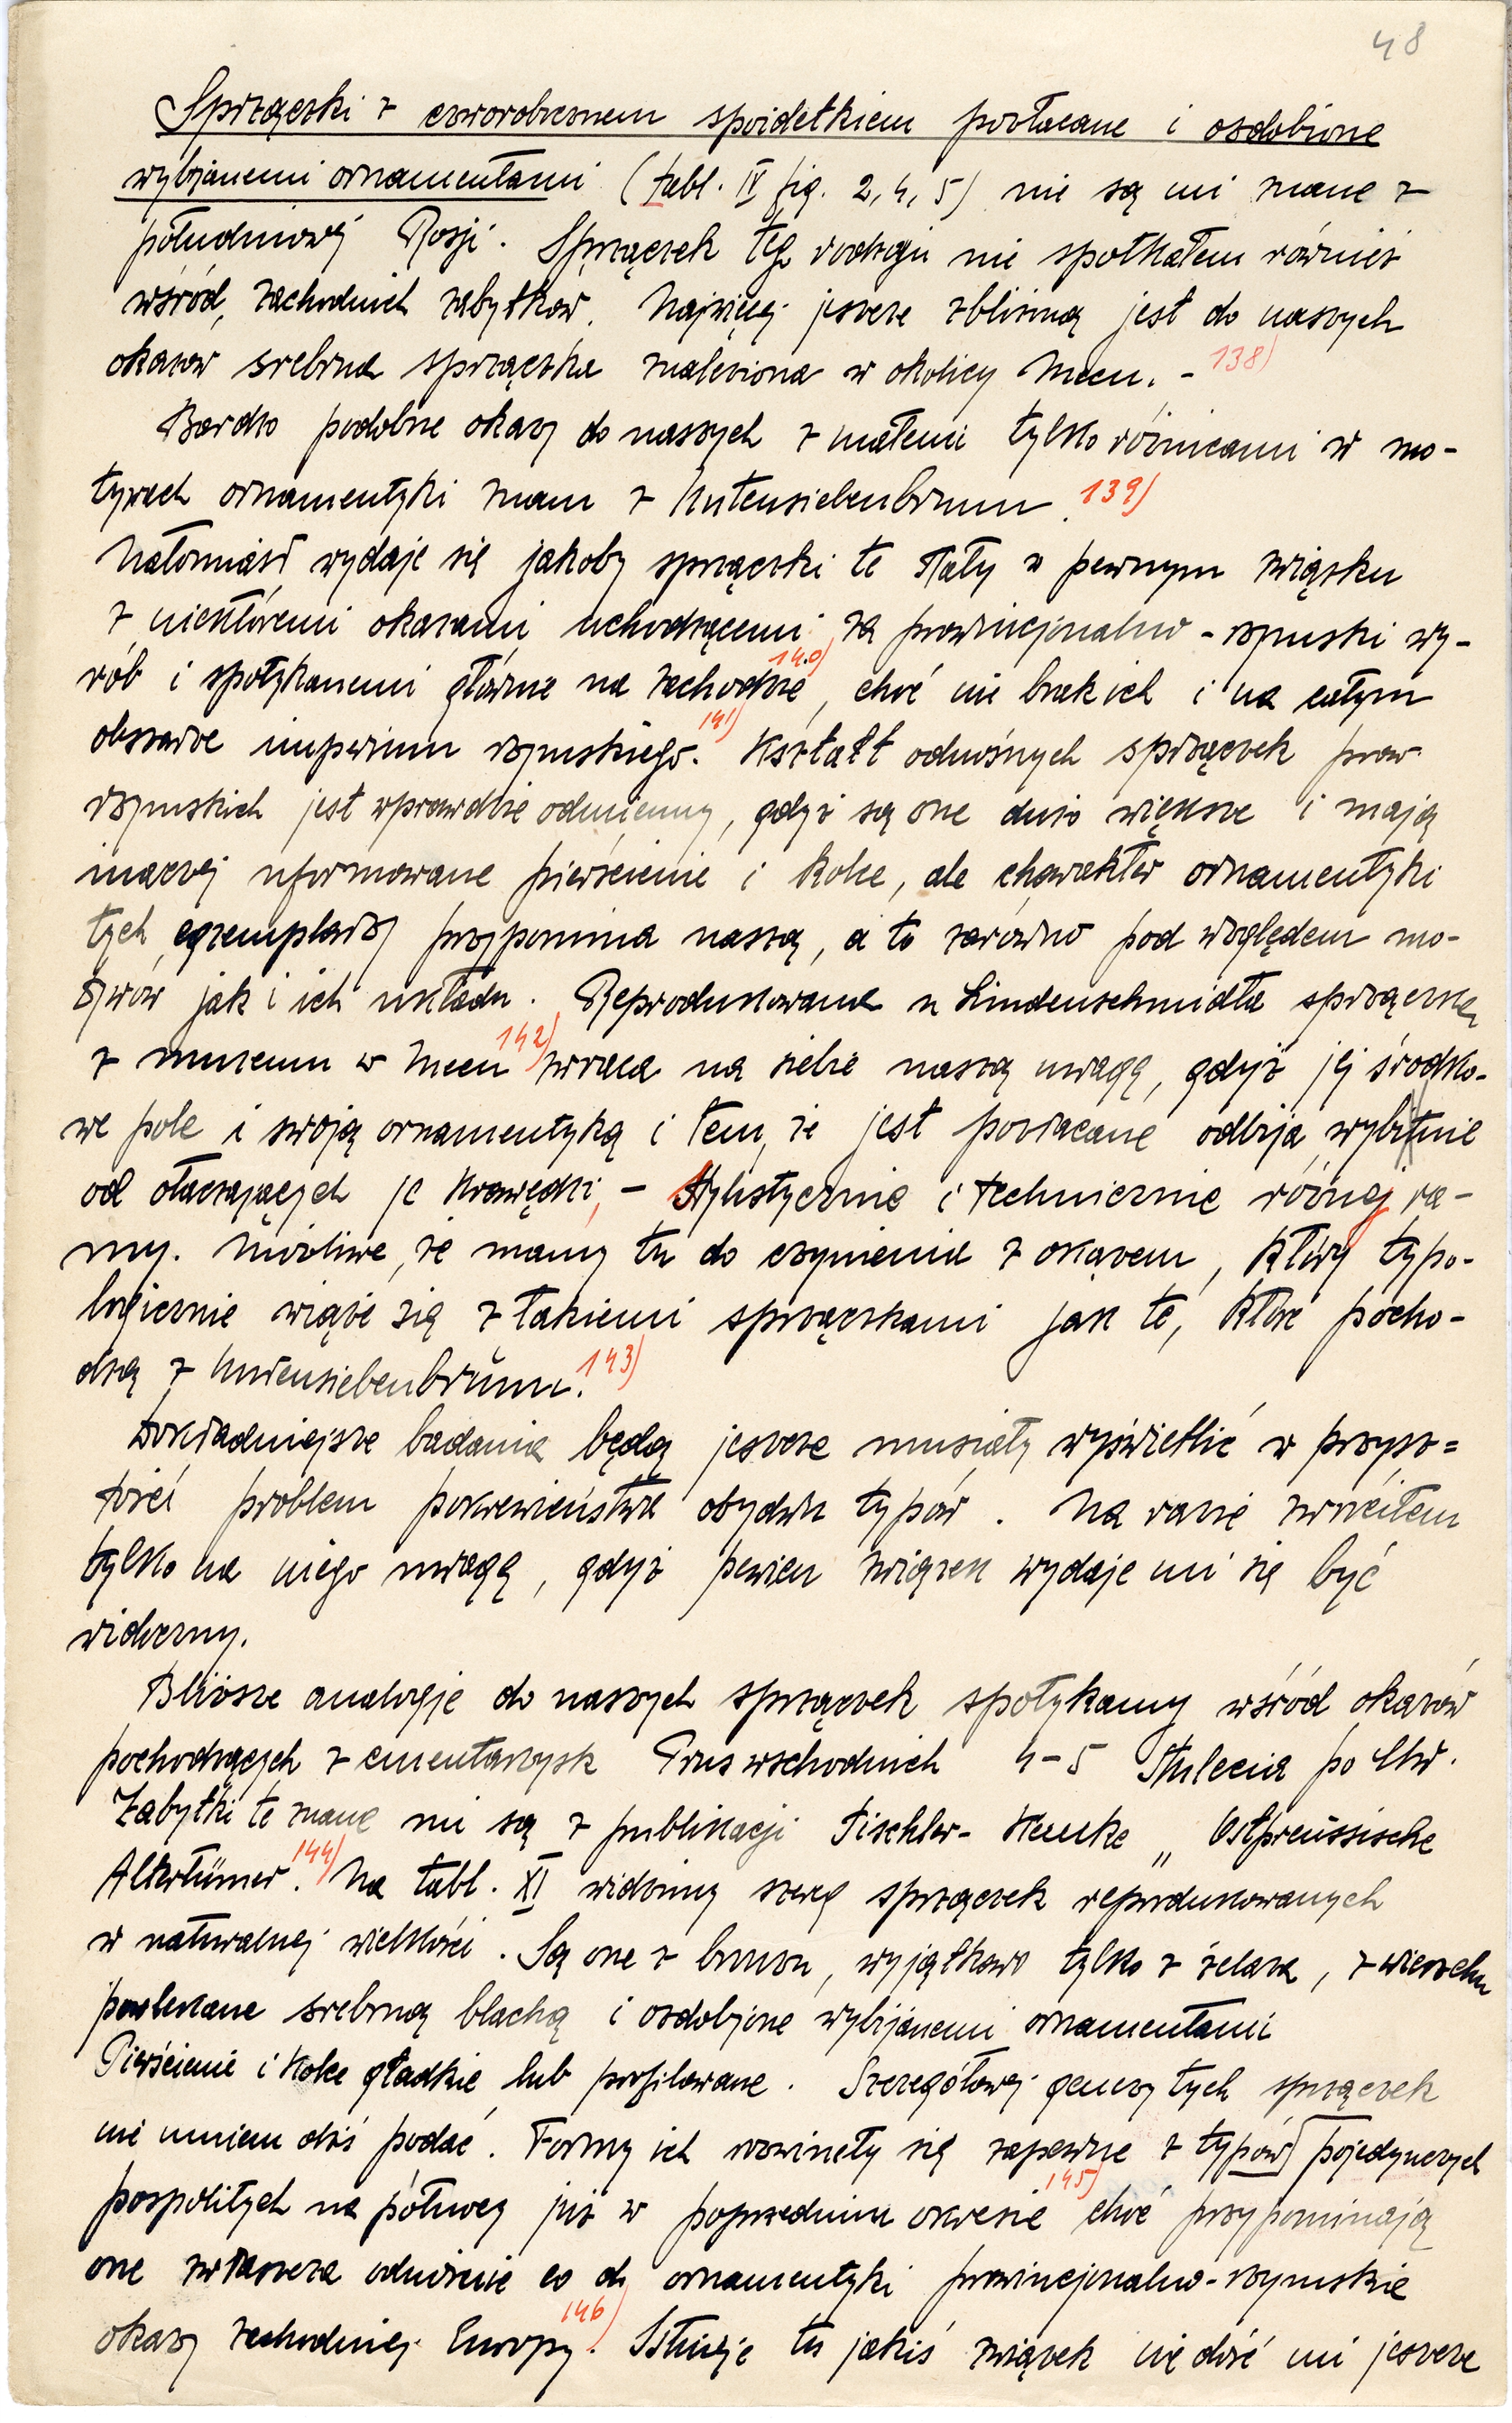 48
Sprzączki z czworobocznem spoidełkiem pozłacane i ozdobione
wybijanemi ornamentami (tabl. IV fig. 2, 4, 5) nie są mi znane z
południowej Rosji. Sprzączek tego rodzaju nie spotkałem również
wśród zachodnich zabytków. Najwięcej jeszcze zbliżoną jest do naszych
okazów srebrna sprzączka znaleziona w okolicy Mcen. - 138)
Bardzo podobne okazy do naszych z małemi tylko różnicami w mo-
tywach ornamentyki znam z Untensiebenbrunn. 139)
Natomiast wydaje się jakoby sprzączki te stały w pewnym związku
z niektóremi okazami uchodzącemi za prowincjonalno-rzymski wy-
rób i spotykanemi głównie na zachodzie 140), choć nie brak ich i na całym
obszarze imperium rzymskiego. 141) Kształt odnośnych sprzączek prow.
rzymskich jest wprawdzie odmienny, gdyż są one dużo większe i mają
inaczej uformowane pierścienie i kolce, ale charakter ornamentyki
tych egzemplarzy przypomina naszą, a to zarówno pod względem mo-
tywów jak i ich układu. Reprodukowana u Lindenschmidta sprzączka
z muzeum w Mcen 142) zwraca na siebie naszą uwagę, gdyż jej środko-
we pole i swoją ornamentyką i tem, że jest pozłacane odbija wybitnie
od otaczających je krawędzi, - stylistycznie i technicznie różnej ra-
my. Możliwe, że mamy tu do czynienia z okazem, który typo-
logicznie wiąże się z takiemi sprzączkami jak te, które pocho-
dzą z Untensiebenbrunn. 143)
Dokładniejsze badania będą jeszcze musiały wyświetlić w przysz=
łości problem pokrewieństwa obydwu typów. Na razie zwróciłem
tylko na niego uwagę, gdyż pewien związek wydaje mi się być
widoczny.
Bliższe analogje do naszych sprzączek spotykamy wśród okazów
pochodzących z cmentarzysk Prus wschodnich 4-5 stulecia po Chr.
Zabytki te znane mi są z publikacji Tischler-Kemke „Ostpreussische
Altertümer. 144) Na tabl. XI widzimy szereg sprzączek reprodukowanych
w naturalnej wielkości. Są one z bronzu, wyjątkowo tylko z żelaza, z wierzchu
powlekane srebrną blachą i ozdobione wybijanemi ornamentami
Pierścienie i kolce gładkie lub profilowane. Szczegółowej genezy tych sprzączek
nie umiem dziś podać. Formy ich rozwinęły się zapewne z typów pojedynczych
pospolitych na północy już w poprzednim okresie 145) choć przypominają
one zwłaszcza odnośnie co do ornamentyki prowincjonalno-rzymskie
okazy zachodniej Europy. 146) Istnieje tu jakiś związek nie dość mi jeszcze